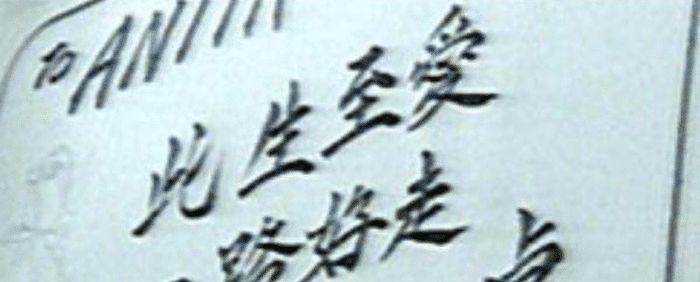 To ANITA
此生至愛
一路好走